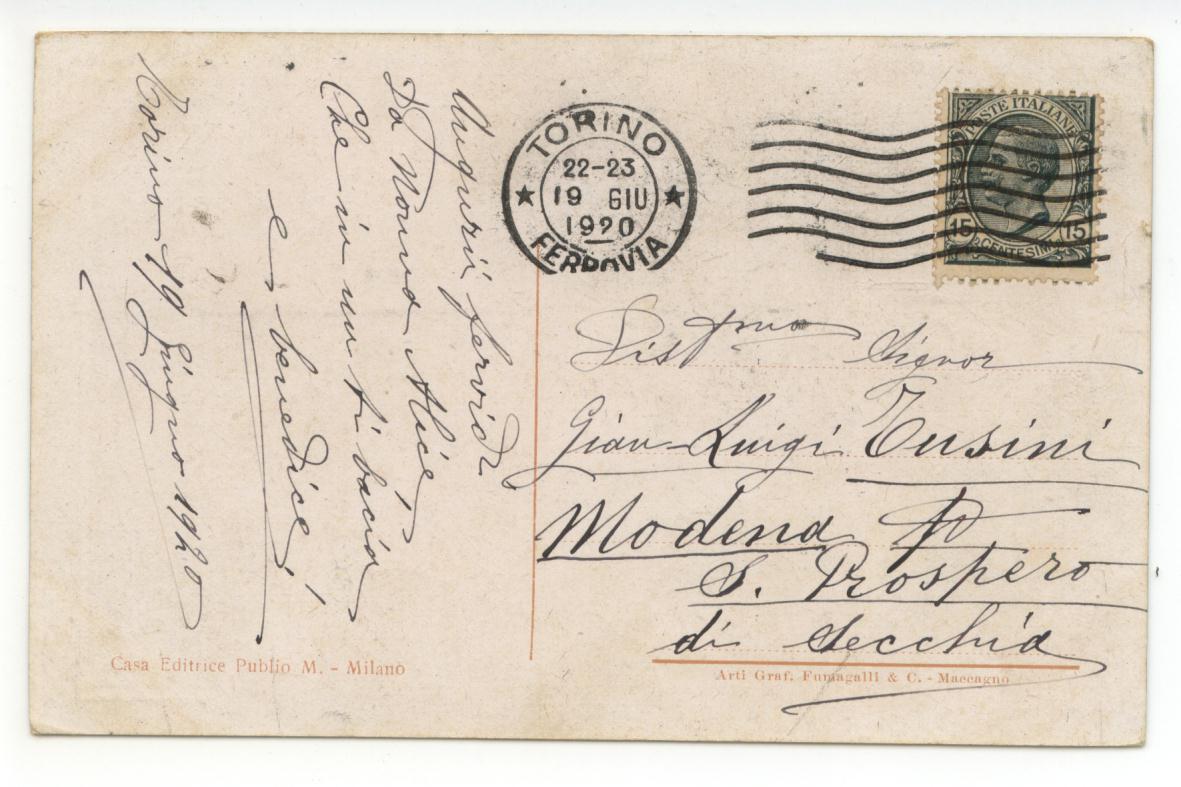 Augurii fervidi
Da Nonna Alice
Che in un ti bacia
e benedice!
Torino 19 Giugno 1920
TORINO
22-23
19 GIU
1920
FERROVIA
POSTE ITALIANE
15 CENTESIMI 15
Distmo Signor
Gian-Luigi Tusini
Modena P
S. Prospero
di Secchia
Casa Editrice Publio M. - Milano
Arti Graf. Fumagalli & C. - Maccagno